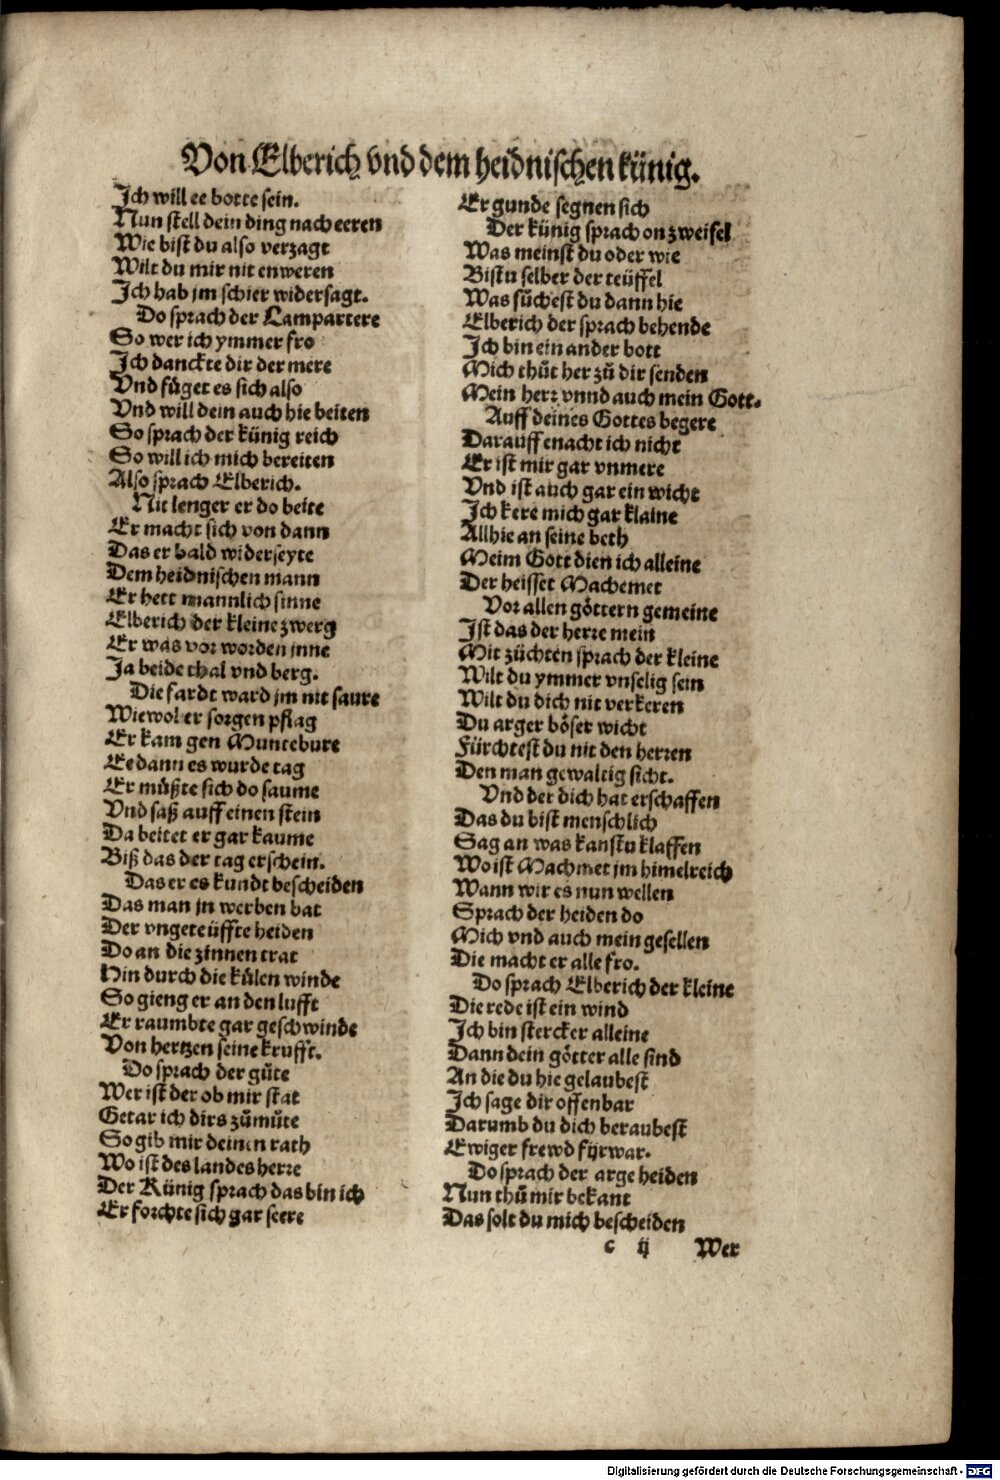 Von Elberich vnd dem heidnischen künig.
Ich will ee botte sein.
Nun stell dein ding nach eeren
Wie bist du also verzagt
Wilt du mir nit enweren
Ich hab jm schier widersagt.
Do sprach der Lampartere
So wer ich ymmer fro
Ich danckte dir der mere
Vnd füget es sich also
Vnd will dein auch hie beiten
So sprach der künig reich
So will ich mich bereiten
Also sprach Elberich.
Nit lenger er do beite
Er macht sich von dann
Das er bald widerseyte
Dem heidnischen mann
Er hett mannlich sinne
Elberich der kleine zwerg
Er was vor worden jnne
Ja beide thal vnd berg.
Die fardt ward jm nit saure
Wiewol er sorgen pflag
Er kam gen Muntebure
Ee dann es wurde tag
Er müßte sich do saume
Vnd saß auff einen stein
Da beitet er gar kaume
Biß das der tag erschein.
Das er es kundt bescheiden
Das man jn werben bat
Der vngeteüffte heiden
Do an die zinnen trat
Hin durch die külen winde
So gieng er an den lufft
Er raumbte gar geschwinde
Von hertzen seine krufft.
Do sprach der güte
Wer ist der ob mir stat
Getar ich dirs zümüte
So gib mir deinen rath
Wo ist des landes herre
Der Künig sprach das bin ich
Er forchte sich gar seere
Er gunde segnen sich
Der künig sprach on zweifel
Was meinst du oder wie
Bistu selber der teüffel
Was süchest du dann hie
Elberich der sprach behende
Ich bin ein ander bott
Mich thüt her zü dir senden
Mein herr vnnd auch mein Gott.
Auff deines Gottes begere
Darauff enacht ich nicht
Er ist mir gar vnmere
Vnd ist auch gar ein wicht
Ich kere mich gar klaine
Allhie an seine beth
Meim Gott dien ich alleine
Der heisset Machemet
Vor allen göttern gemeine
Ist das der herre mein
Mit züchten sprach der kleine
Wilt du ymmer vnselig sein
Wilt du dich nit verkeren
Du arger böser wicht
Fürchtest du nit den herren
Den man gewaltig sicht.
Vnd der dich hat erschaffen
Das du bist menschlich
Sag an was kanstu klaffen
Wo ist Machmet jm himelreich
Wann wir es nun wellen
Sprach der heiden do
Mich vnd auch mein gesellen
Die macht er alle fro.
Do sprach Elberich der kleine
Die rede ist ein wind
Ich bin stercker alleine
Dann dein götter alle sind
An die du hie gelaubest
Ich sage dir offenbar
Darumb du dich beraubest
Ewiger frewd fürwar.
Do sprach der arge heiden
Nun thü mir bekant
Das solt du mich bescheiden
c ij Wer
Digitalisierung gefördert durch die Deutsche Forschungsgemeinschaft - DFG